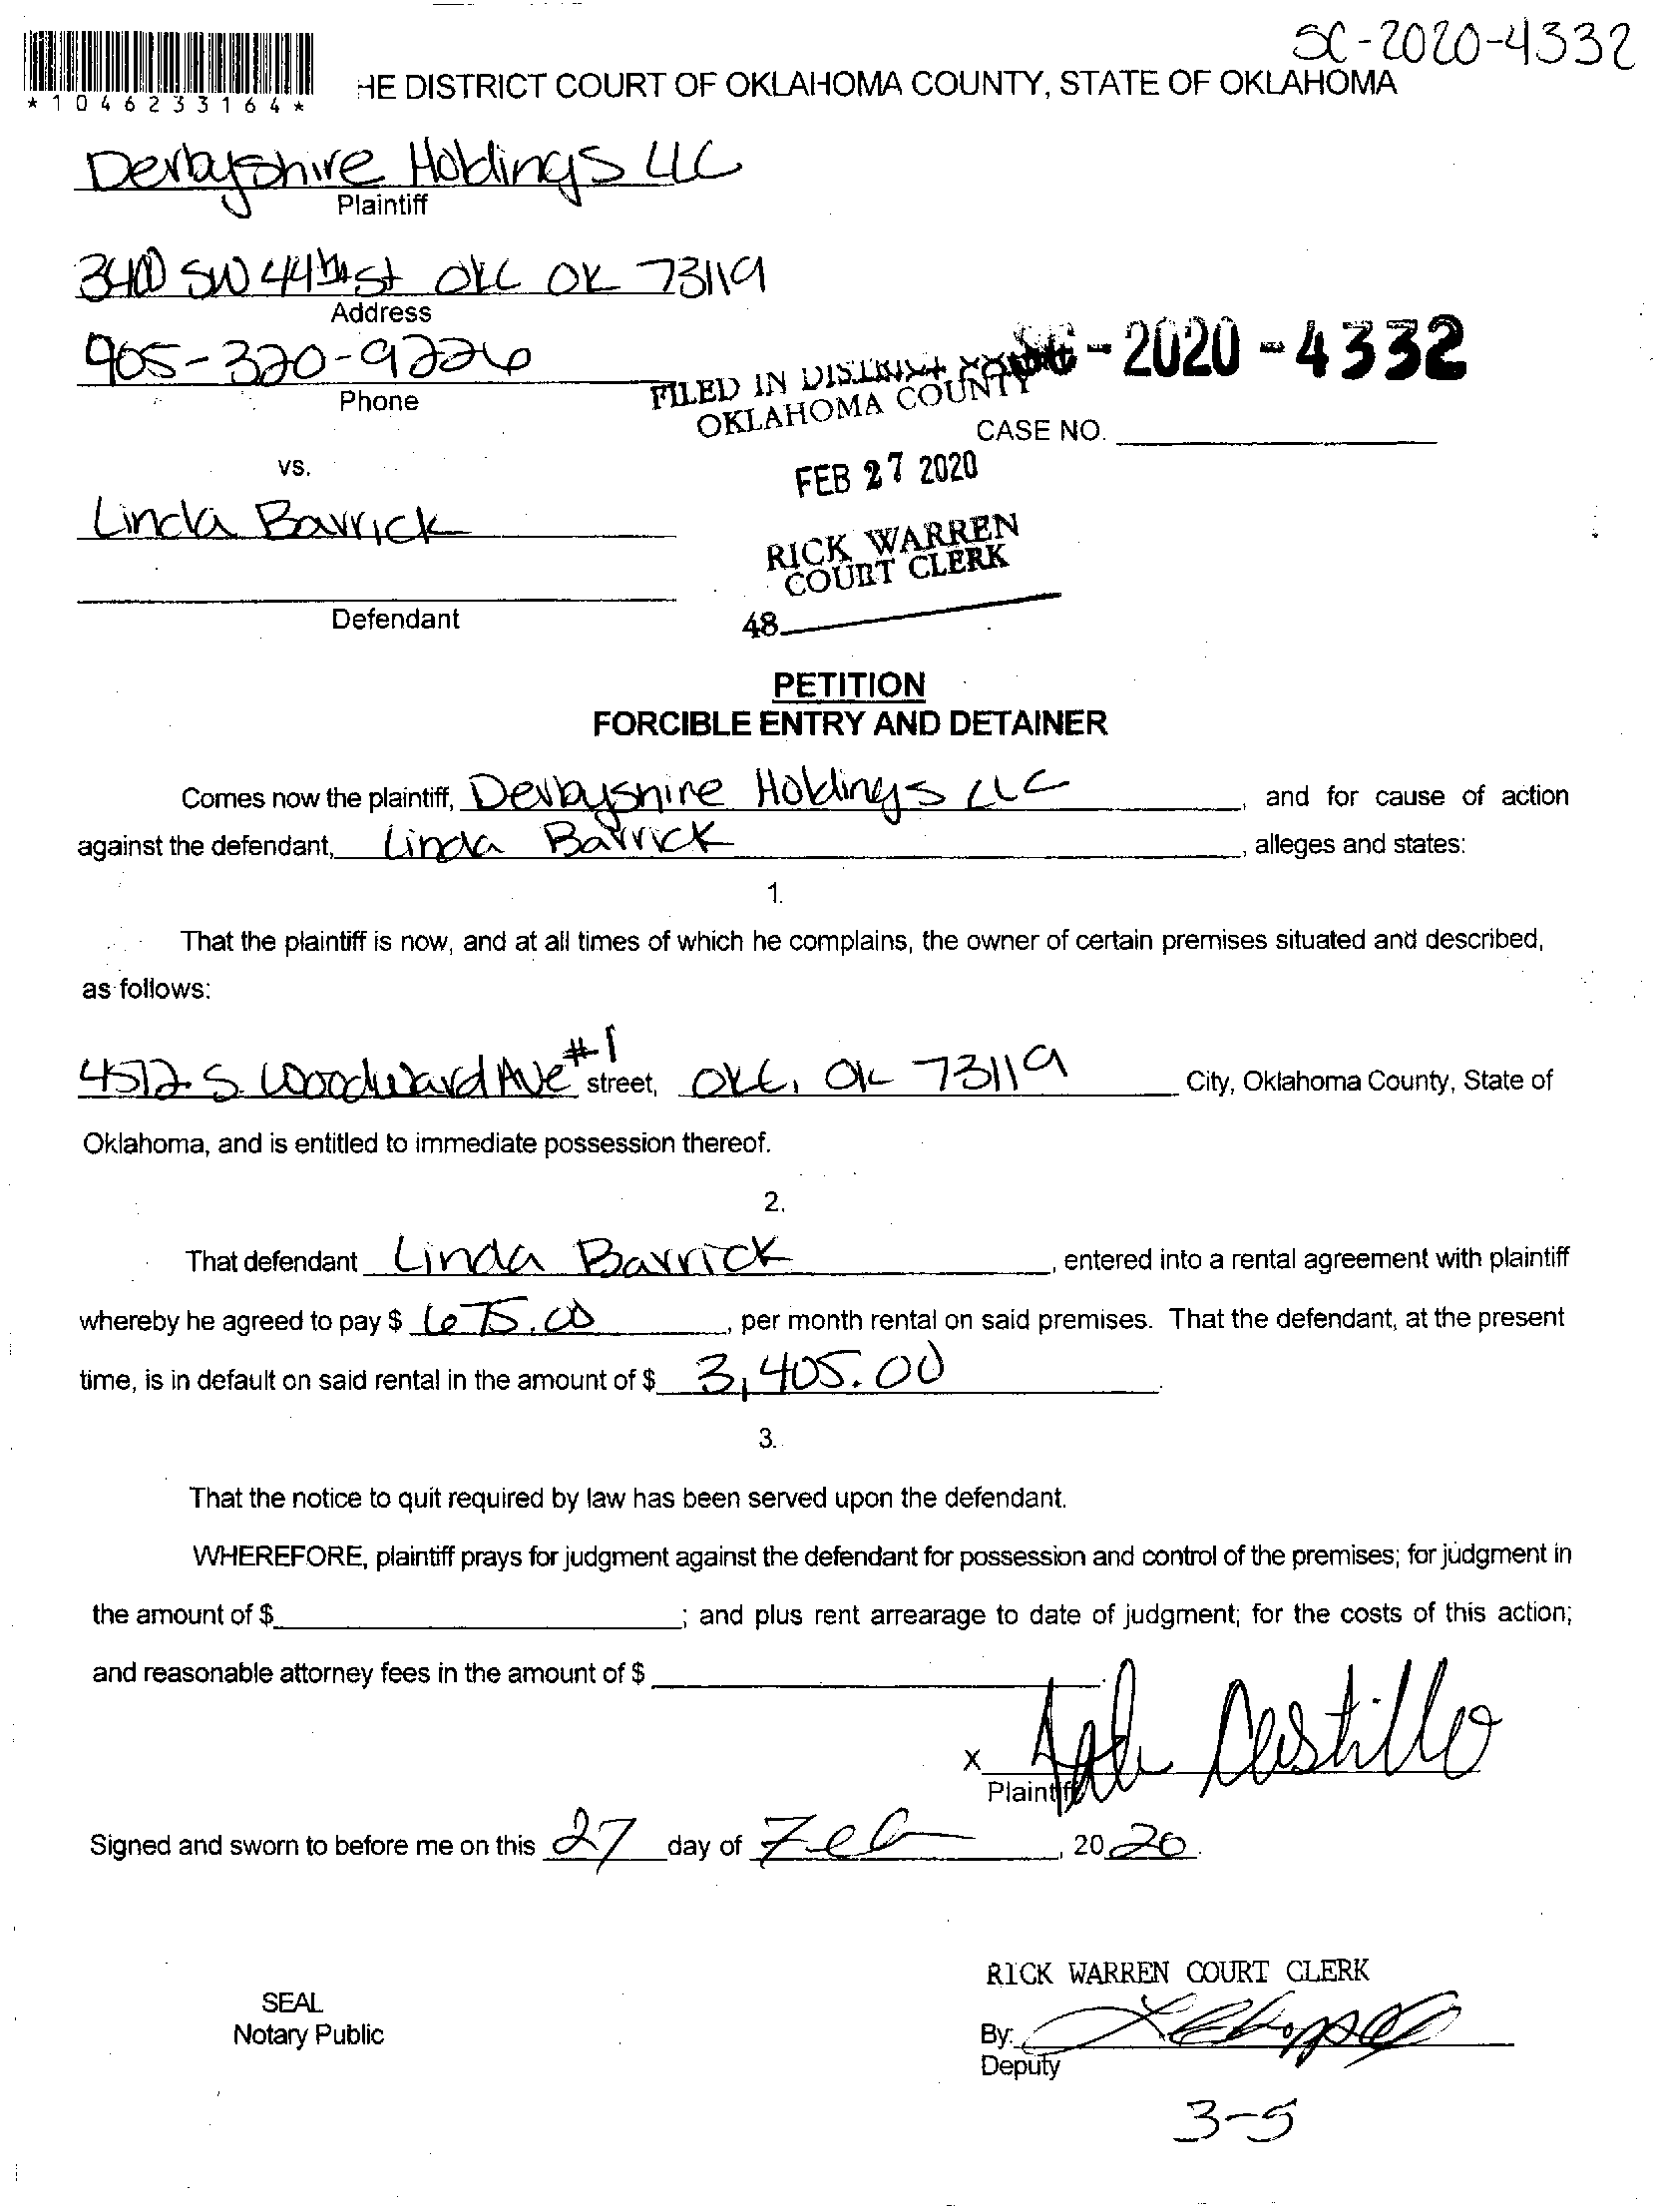 SC-2020-4332
*1046233164*
HE DISTRICT COURT OF OKLAHOMA COUNTY, STATE OF OKLAHOMA
Derbyshire Holdings LLC
Plaintiff
3400 SW 44th St OKC OK 73119
Address
905-320-9226
Phone
-2020-4332
FILED IN DISTRICT COURT
OKLAHOMA COUNTY
CASE NO.
vs.
FEB 27 2020
Linda Barrick
RICK WARREN
COURT CLERK
Defendant
48
PETITION
FORCIBLE ENTRY AND DETAINER
Comes now the plaintiff, Derbyshire Holdings LLC, and for cause of action
against the defendant, Linda Barrick, alleges and states:
1.
That the plaintiff is now, and at all times of which he complains, the owner of certain premises situated and described,
as follows:
4512 S. Woodward Ave #1 street, OKC, OK 73119 City, Oklahoma County, State of
Oklahoma, and is entitled to immediate possession thereof.
2.
That defendant Linda Barrick, entered into a rental agreement with plaintiff
whereby he agreed to pay $ 675.00, per month rental on said premises. That the defendant, at the present
time, is in default on said rental in the amount of $ 3,405.00.
3.
That the notice to quit required by law has been served upon the defendant.
WHEREFORE, plaintiff prays for judgment against the defendant for possession and control of the premises; for judgment in
the amount of $; and plus rent arrearage to date of judgment; for the costs of this action;
and reasonable attorney fees in the amount of $.
x Castillo
Plaintiff
Signed and sworn to before me on this 27 day of Feb, 2020.
RICK WARREN COURT CLERK
SEAL
Notary Public
By:
Deputy
3-5